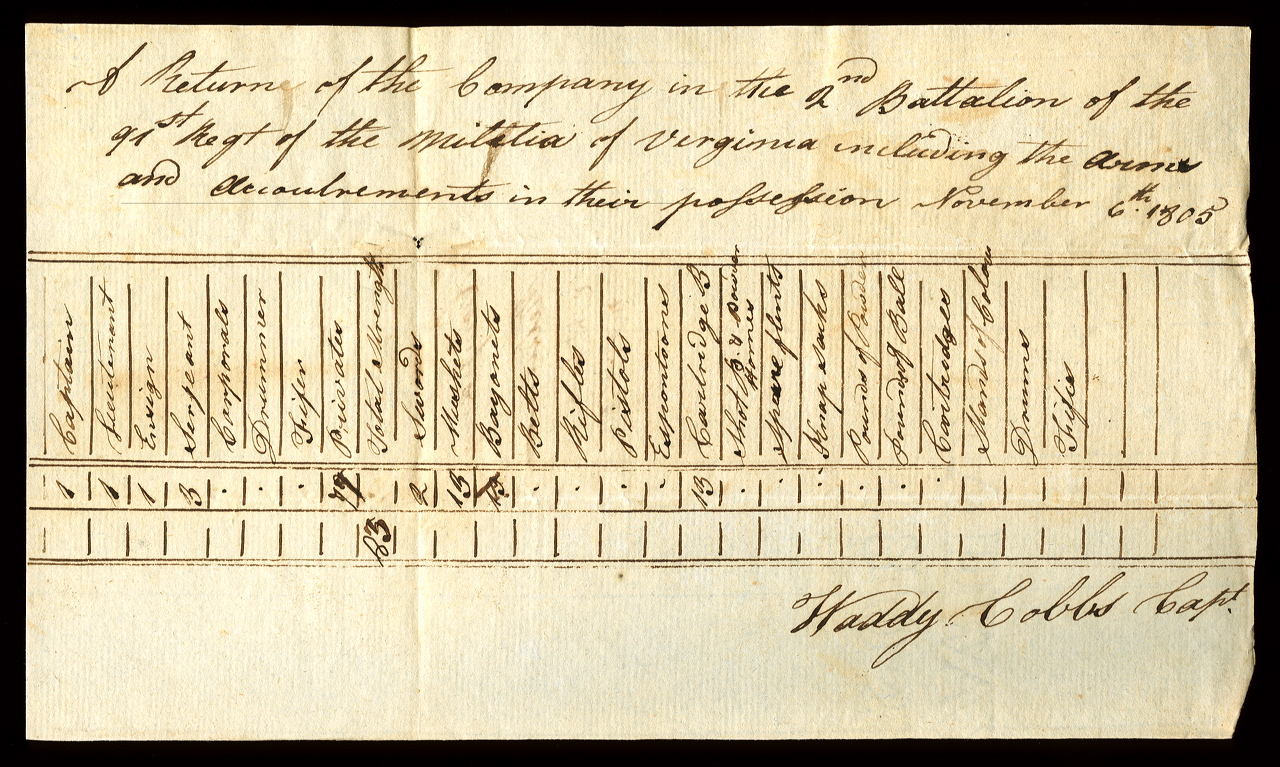 A Return of the Company in the 2nd Battalion of the
91st Regt of the Militia of Verginia including the arms
and Accoutrements in their possession November 6th 1805
Captain
Lieutenant
Ensign
Serjeant
Corporals
Drummer
Fifer
Privates
Total Strength
Swords
Muskets
Bayonets
Belts
Rifles
Pistols
Espontoones
Cartridge B
Shot B. & Powder
Hornes
Spare flints
Knap sacks
Pounds of Powder
Pounds of Ball
Cartredges
Stands of Colours
Drums
Fifes
1 1 1 3 . . . 2 15 . . . . 13 . . . . . .
83
Waddy Cobbs Capt.